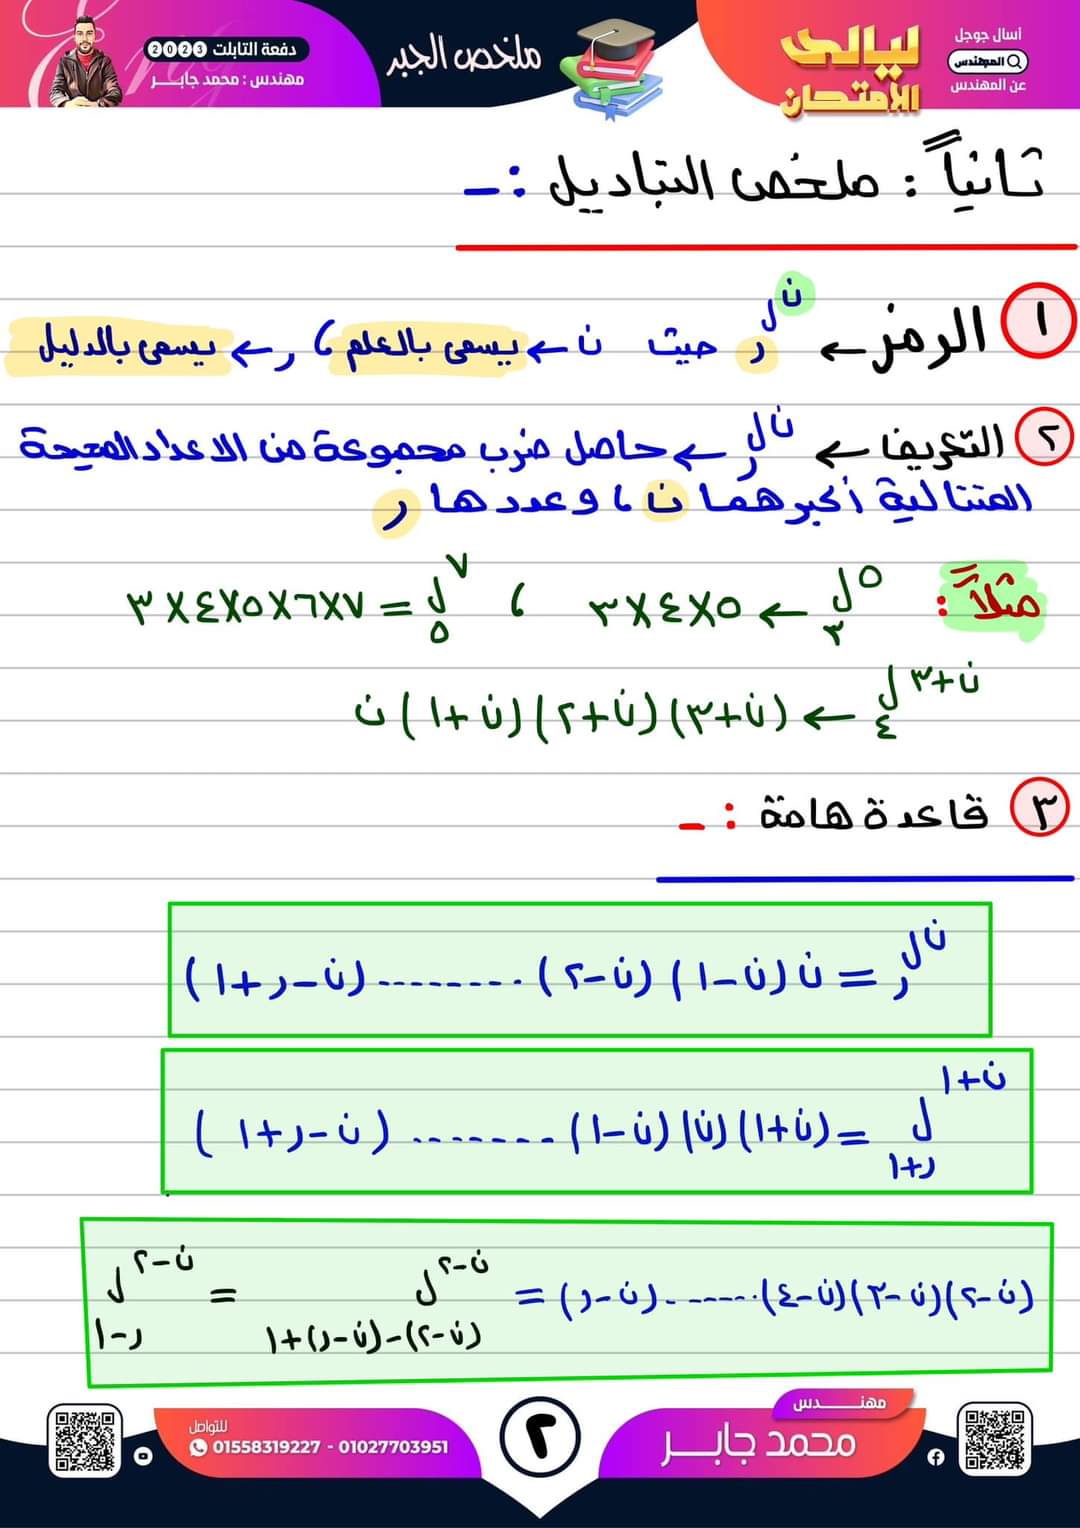 اسأل جوجل
المهندس
عن المهندس
ليالى
الامتحان
ملخص الجبر
دفعة التابلت 2023
مهندس : محمد جابـــر
ثانياً : ملخص التباديل :-
١ الرمز ← نلر حيث ن ← يسمى بالعلم ، ر ← يسمى بالدليل
٢ التعريف ← نلر ← حاصل ضرب مجموعة من الاعداد الصحيحة
المتتالية أكبرهما ن ، وعددها ر
مثلاً : ٥ل٣ ← ٥×٤×٣ ، ٧ل٥ = ٧×٦×٥×٤×٣
ن+٣ل٤ ← (ن+٣)(ن+٢)(ن+١) ن
٣ قاعدة هامة :-
نلر = ن (ن-١) (ن-٢) ........ (ن-ر+١)
ن+١لر+١ = (ن+١)(ن)(ن-١) ....... (ن-ر+١)
(ن-٢)(ن-٣)(ن-٤)........(ن-ر) = ن-٢ل(ن-٢)-(ن-ر)+١ = ن-٢لر-١
مهنــــدس
محمد جابــر
٢
للتواصل
01558319227 - 01027703951